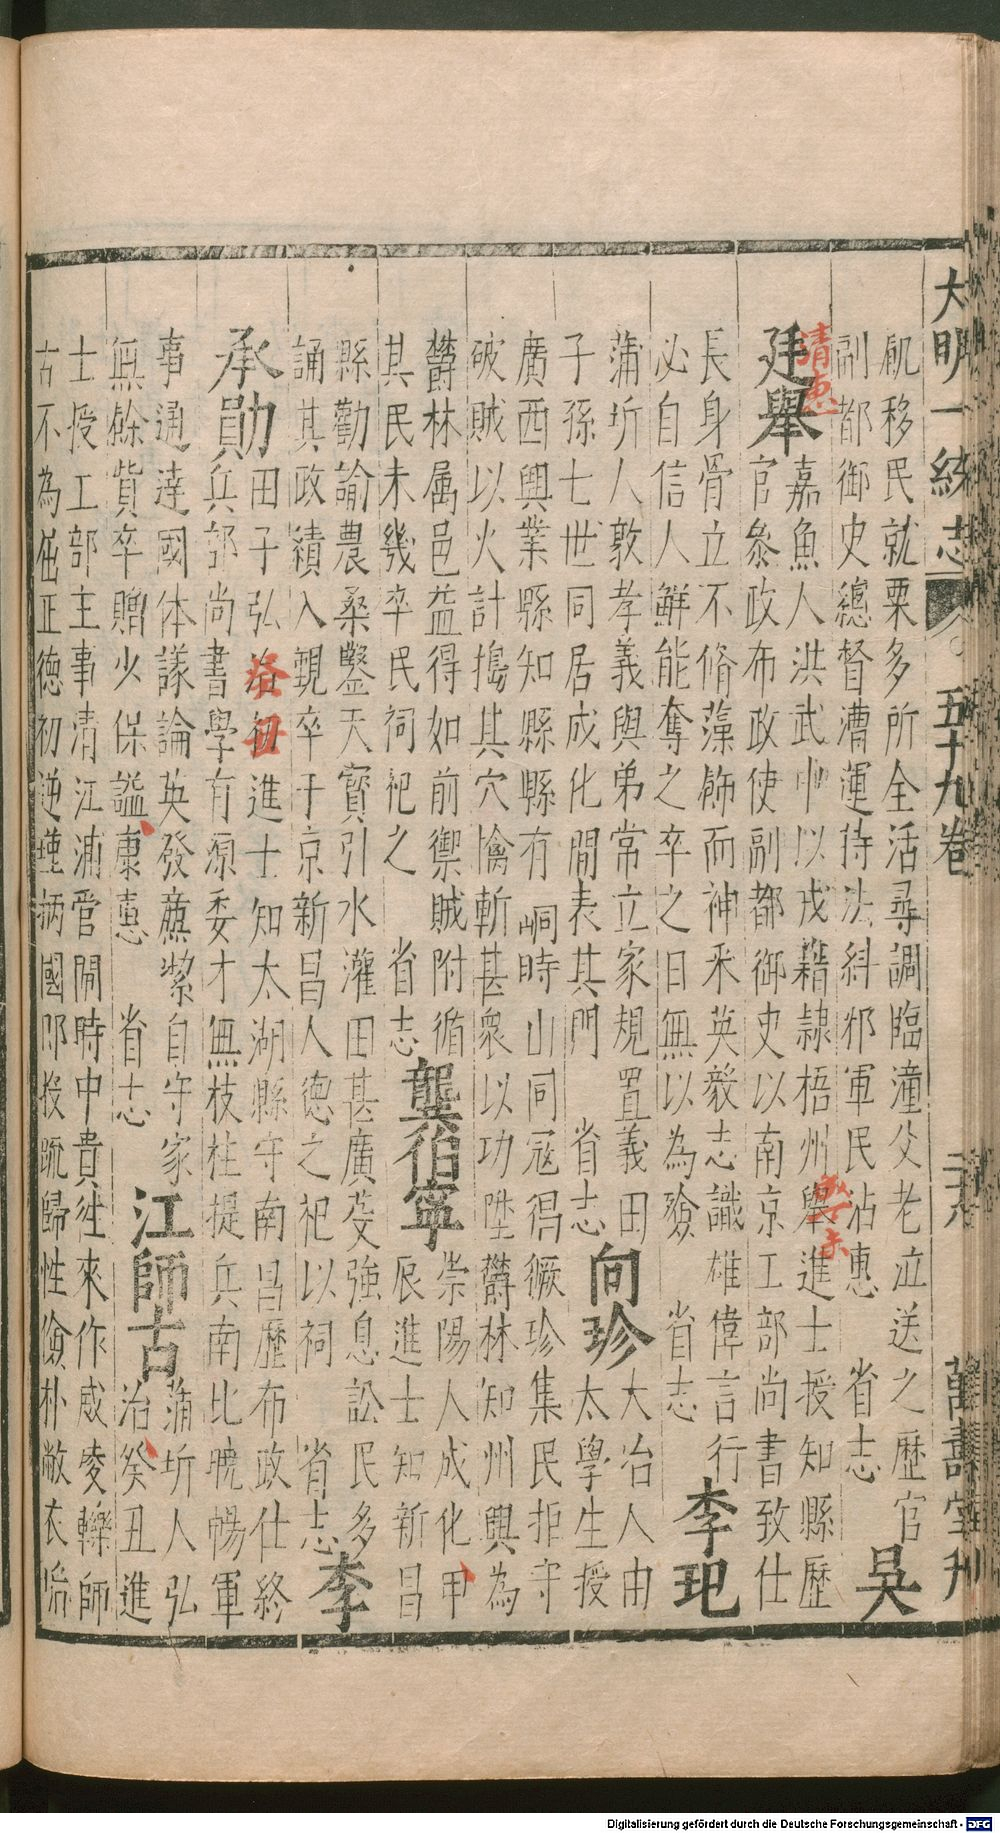 大明一統志 五十九卷 二十八 萬壽堂刊
飢移民就粟多所全活尋調臨潼父老泣送之歷官
副都御史總督漕運持法糾邪軍民沾惠 省志 吳
廷舉 嘉魚人洪武中以戍籍隸梧州舉進士授知縣歷
官叅政布政使副都御史以南京工部尚書致仕
長身骨立不脩藻飾而神采英毅志識雄偉言行
必自信人鮮能奪之卒之日無以為殮 省志 李玘
蒲圻人敦孝義與弟常立家規置義田
子孫七世同居成化間表其門 省志 向珍 大冶人由
太學生授
廣西興業縣知縣縣有峒時山同寇猖獗珍集民拒守
破賊以火計搗其穴擒斬甚衆以功陞欝林知州興為
欝林属邑益得如前禦賊附循
其民未幾卒民祠祀之 省志 龔伯寧 崇陽人成化甲
辰進士知新昌
縣勸諭農桑鑿天寳引水灌田甚廣芟強息訟民多
誦其政績入覲卒于京新昌人德之祀以祠 省志 李
承勛 田子弘治初進士知太湖縣守南昌歷布政仕終
兵部尚書學有源委才無枝柱提兵南北曉暢軍
事通達國体議論英發㢘絜自守家
無餘貲卒贈少保謚康惠 省志 江師古 蒲圻人弘
治癸丑進
士授工部主事清江浦管閘時中貴徃來作威凌轢師
古不為屈正德初逆瑾柄國即投䟽歸性儉朴敝衣
清惠
癸未
癸丑
Digitalisierung gefördert durch die Deutsche Forschungsgemeinschaft - DFG